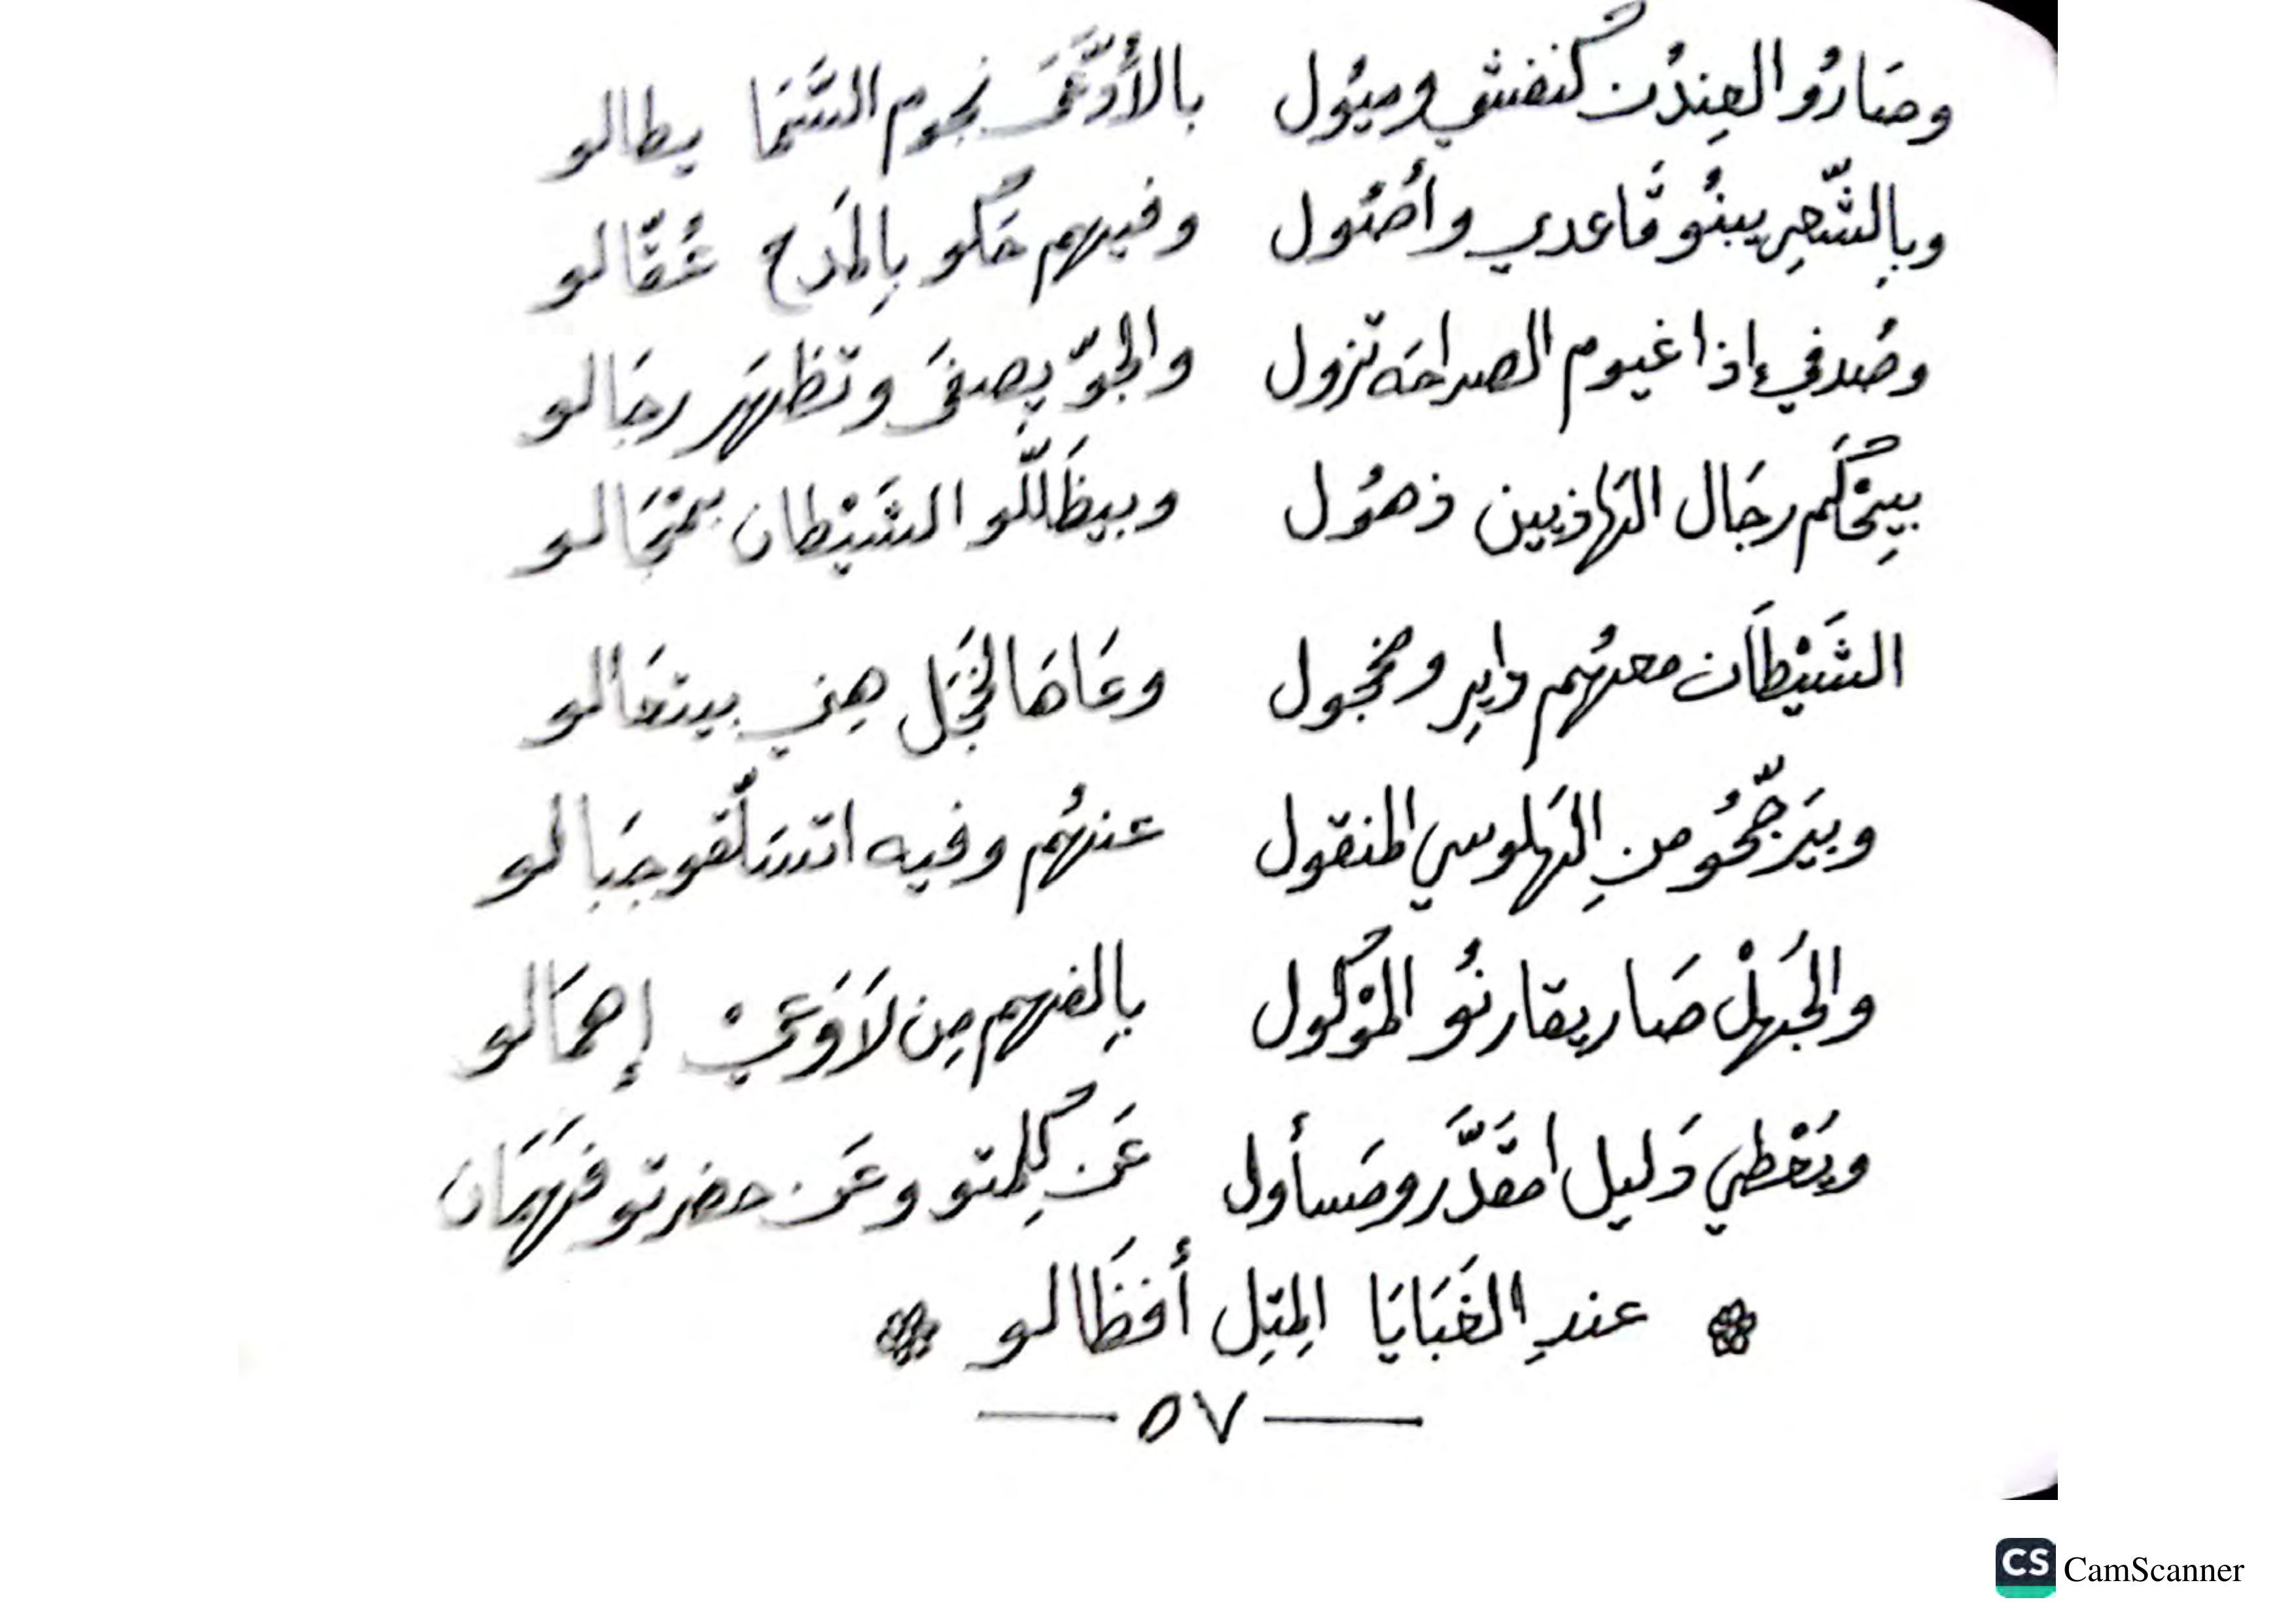 وصَارُو العِندُن كنفشي وميُول بالأدَّعَى نجوم السَّمَا يطالو
وبِالشّعِر يبنُو قَاعدي وأصُول وفيهم حَكو بِالمَدح عُقَّالو
وصُدفيء اذا غيوم الصراحَه تزول والجوّ يِصفَى وتظهَر رجَالو
بيِحْكَم رجَال الهَاذيين ذهُول وبيظَللّو الشَيْطان بمْجَالو
الشَيْطَان معهُم دَايِر ومخجول وعَاهَا لخَجَل هِني بيتعَالو
وبيَرجّحُو منِ الهَلوسي المنقول عنهُم وفيه اتسَلّقو جبَالو
والجَهلْ صَار يقارنُو المَوْكول بِالفهم مِن لَا وَعيْ إهمَالو
ويَعْطي دَليل امقَدَّر ومَسأول عَن كِلمتو وعَن حضرتو فَهمَان
عندِ الغَبَايَا المِتِل أفظَالو
— ٥٧ —
CS CamScanner